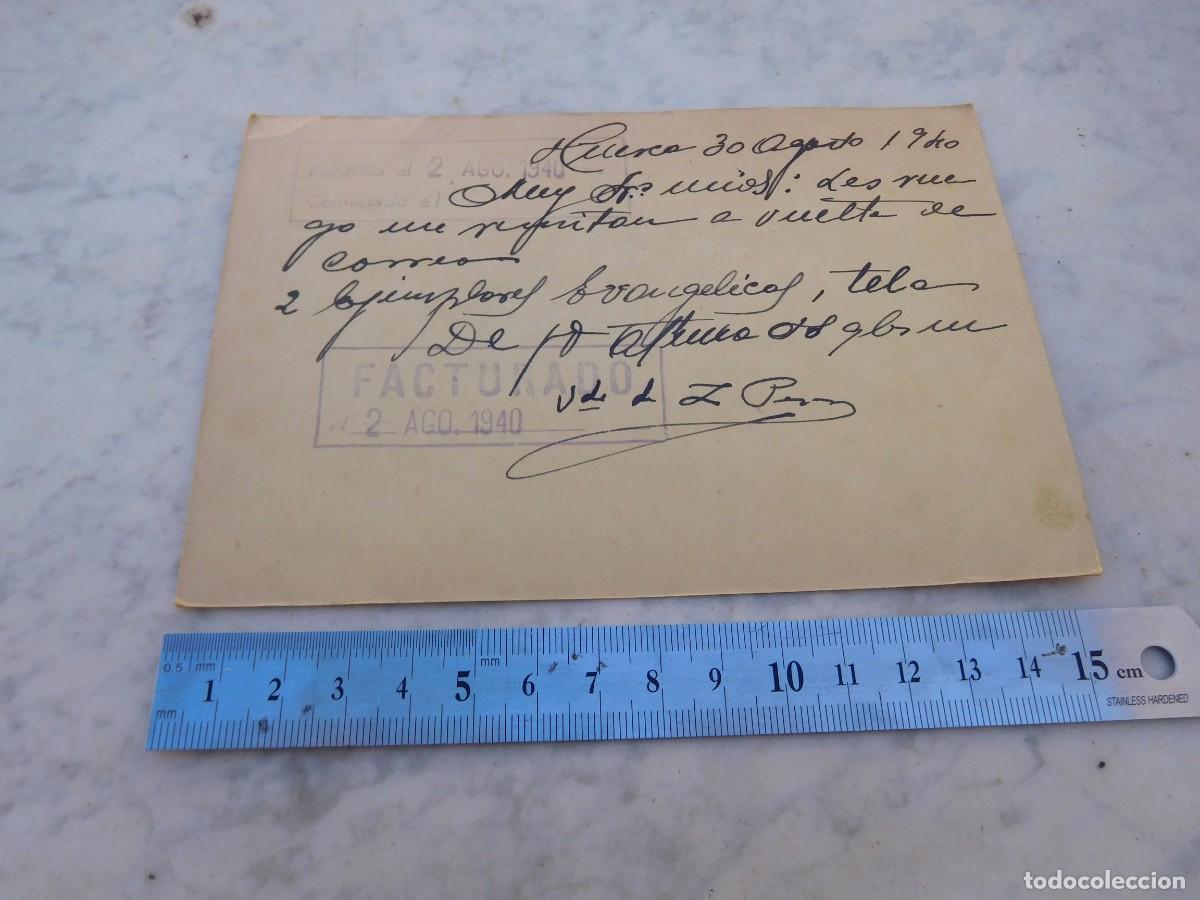 Huesca 30 Agosto 1940
Recibido el 2 AGO. 1940
Contestado el
Muy Srs. mios: Les rue
go me remitan a vuelta de
correo
2 Ejemplares Evangelicos, tela
De Vd atto
FACTURADO
el 2 AGO. 1940
Vda de L
0.5 mm mm
1 2 3 4 5 6 7 8 9 10 11 12 13 14 15 cm
mm
STAINLESS HARDENED
todocoleccion